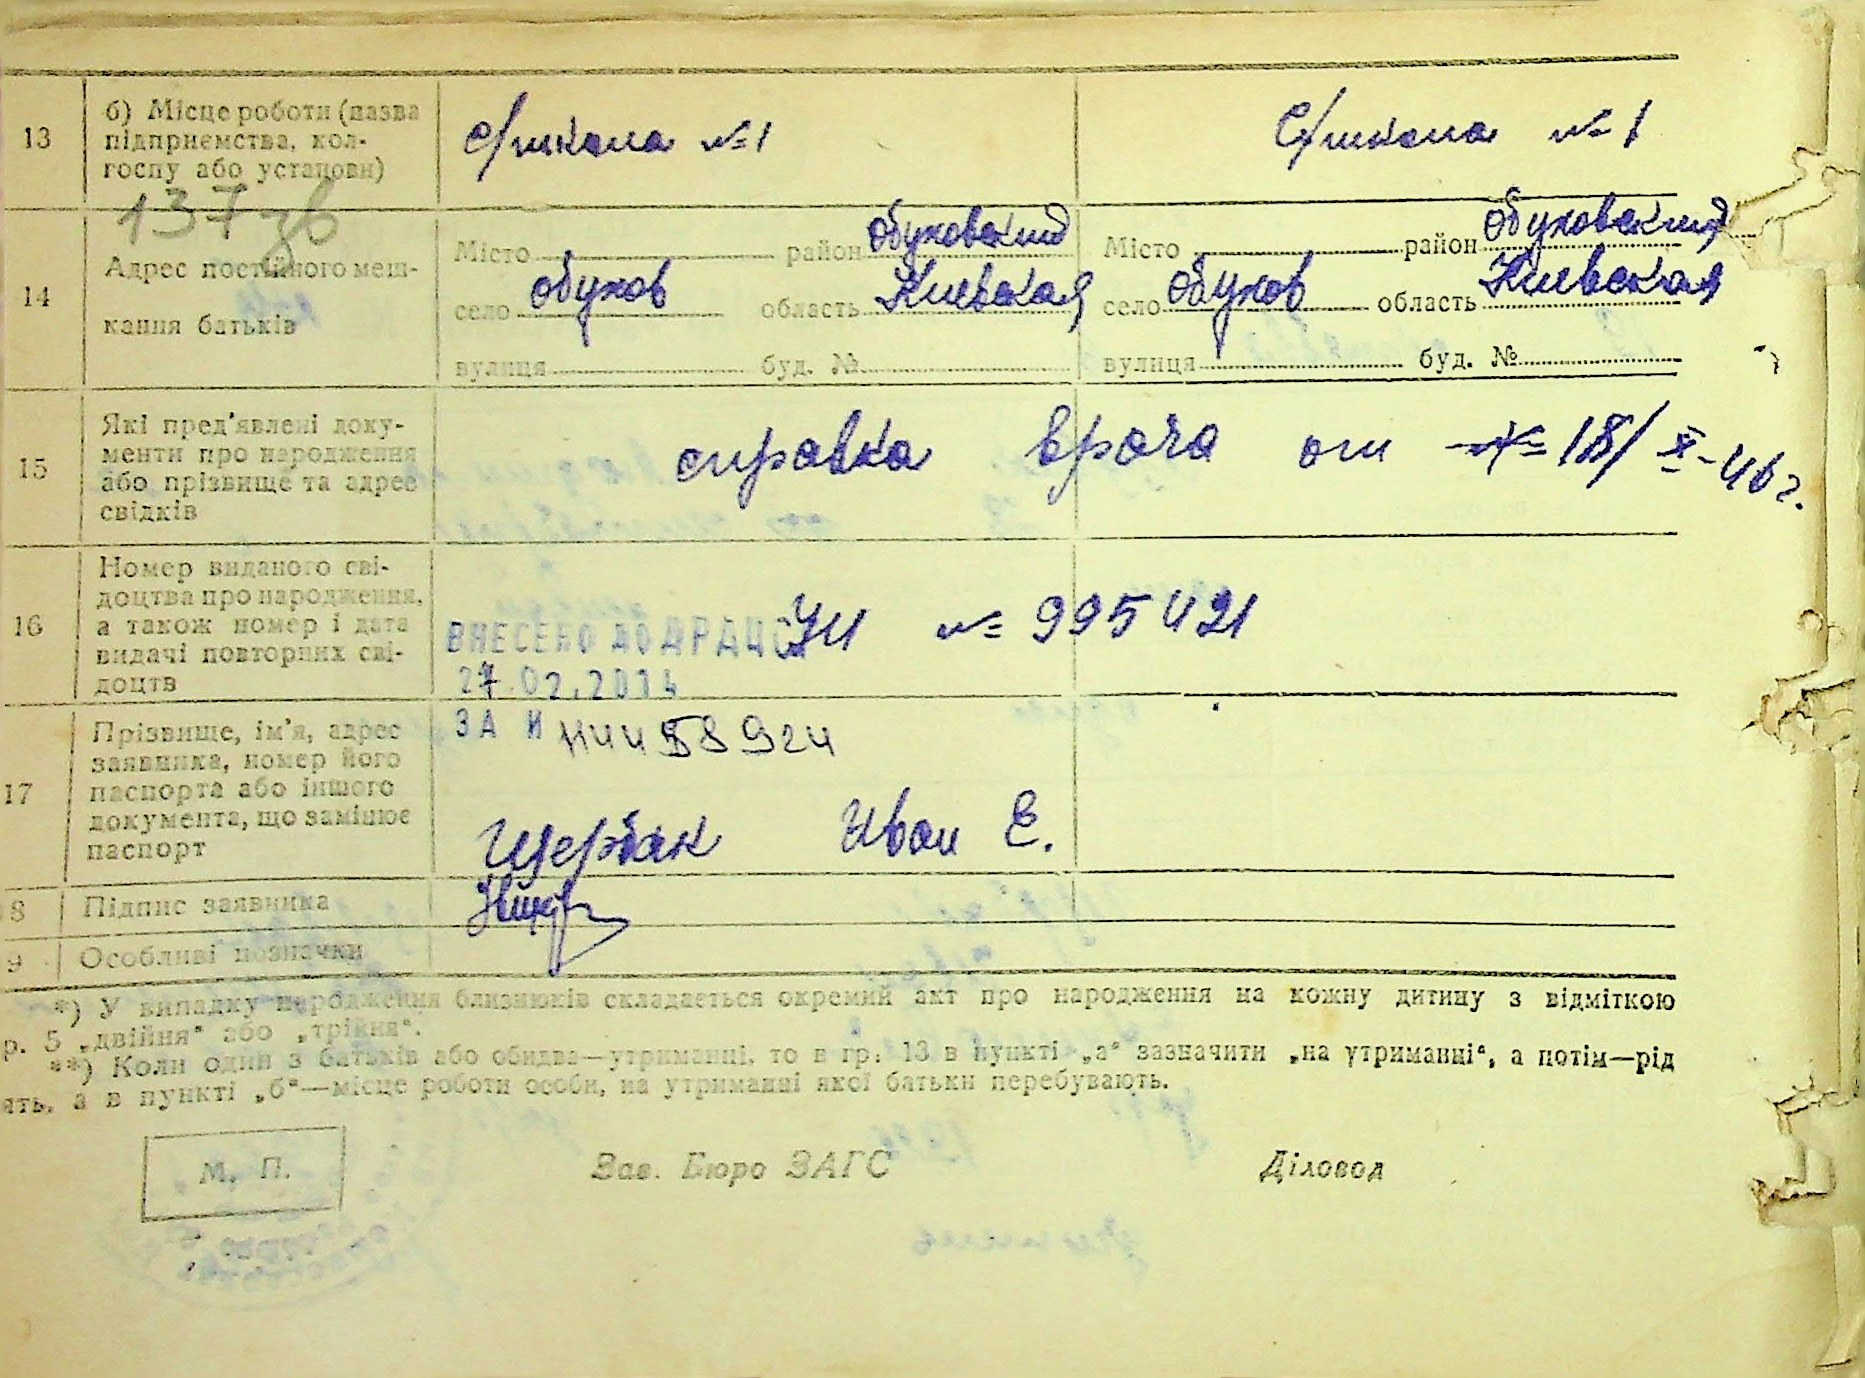 13 б) Місце роботи (назва підприємства, кол-госпу або установи) с/школа №1 с/школа №1
137 зв
14 Адрес постійного меш-кання батьків
Місто район Обуховский Місто район Обуховский
село Обухов область Киевская село Обухов область Киевская
вулиця буд. № вулиця буд. №
15 Які пред'явлені доку-
менти про народження
або прізвище та адрес
свідків
справка врача от 18/X-46 г.
16 Номер виданого сві-
доцтва про народження,
а також номер і дата
видачі повторних сві-
доцтв
ВНЕСЕНО ДО ДРАЦС
УИ № 995421
27.02.2014
ЗА №
17 Прізвище, ім'я, адрес
заявника, номер його
паспорта або іншого
документа, що замінює
паспорт
Щербак Иван Е.
8 Підпис заявника
9 Особливі позначки
*) У випадку народження близнюків складається окремий акт про народження на кожну дитину з відміткою
р. 5 „двійня“ або „трійня“.
**) Коли один з батьків або обидва—утриманці, то в гр. 13 в пункті „а“ зазначити „на утриманні“, а потім—рід
ять, а в пункті „б“—місце роботи особи, на утриманні якої батьки перебувають.
М. П. Зав. Бюро ЗАГС Діловод